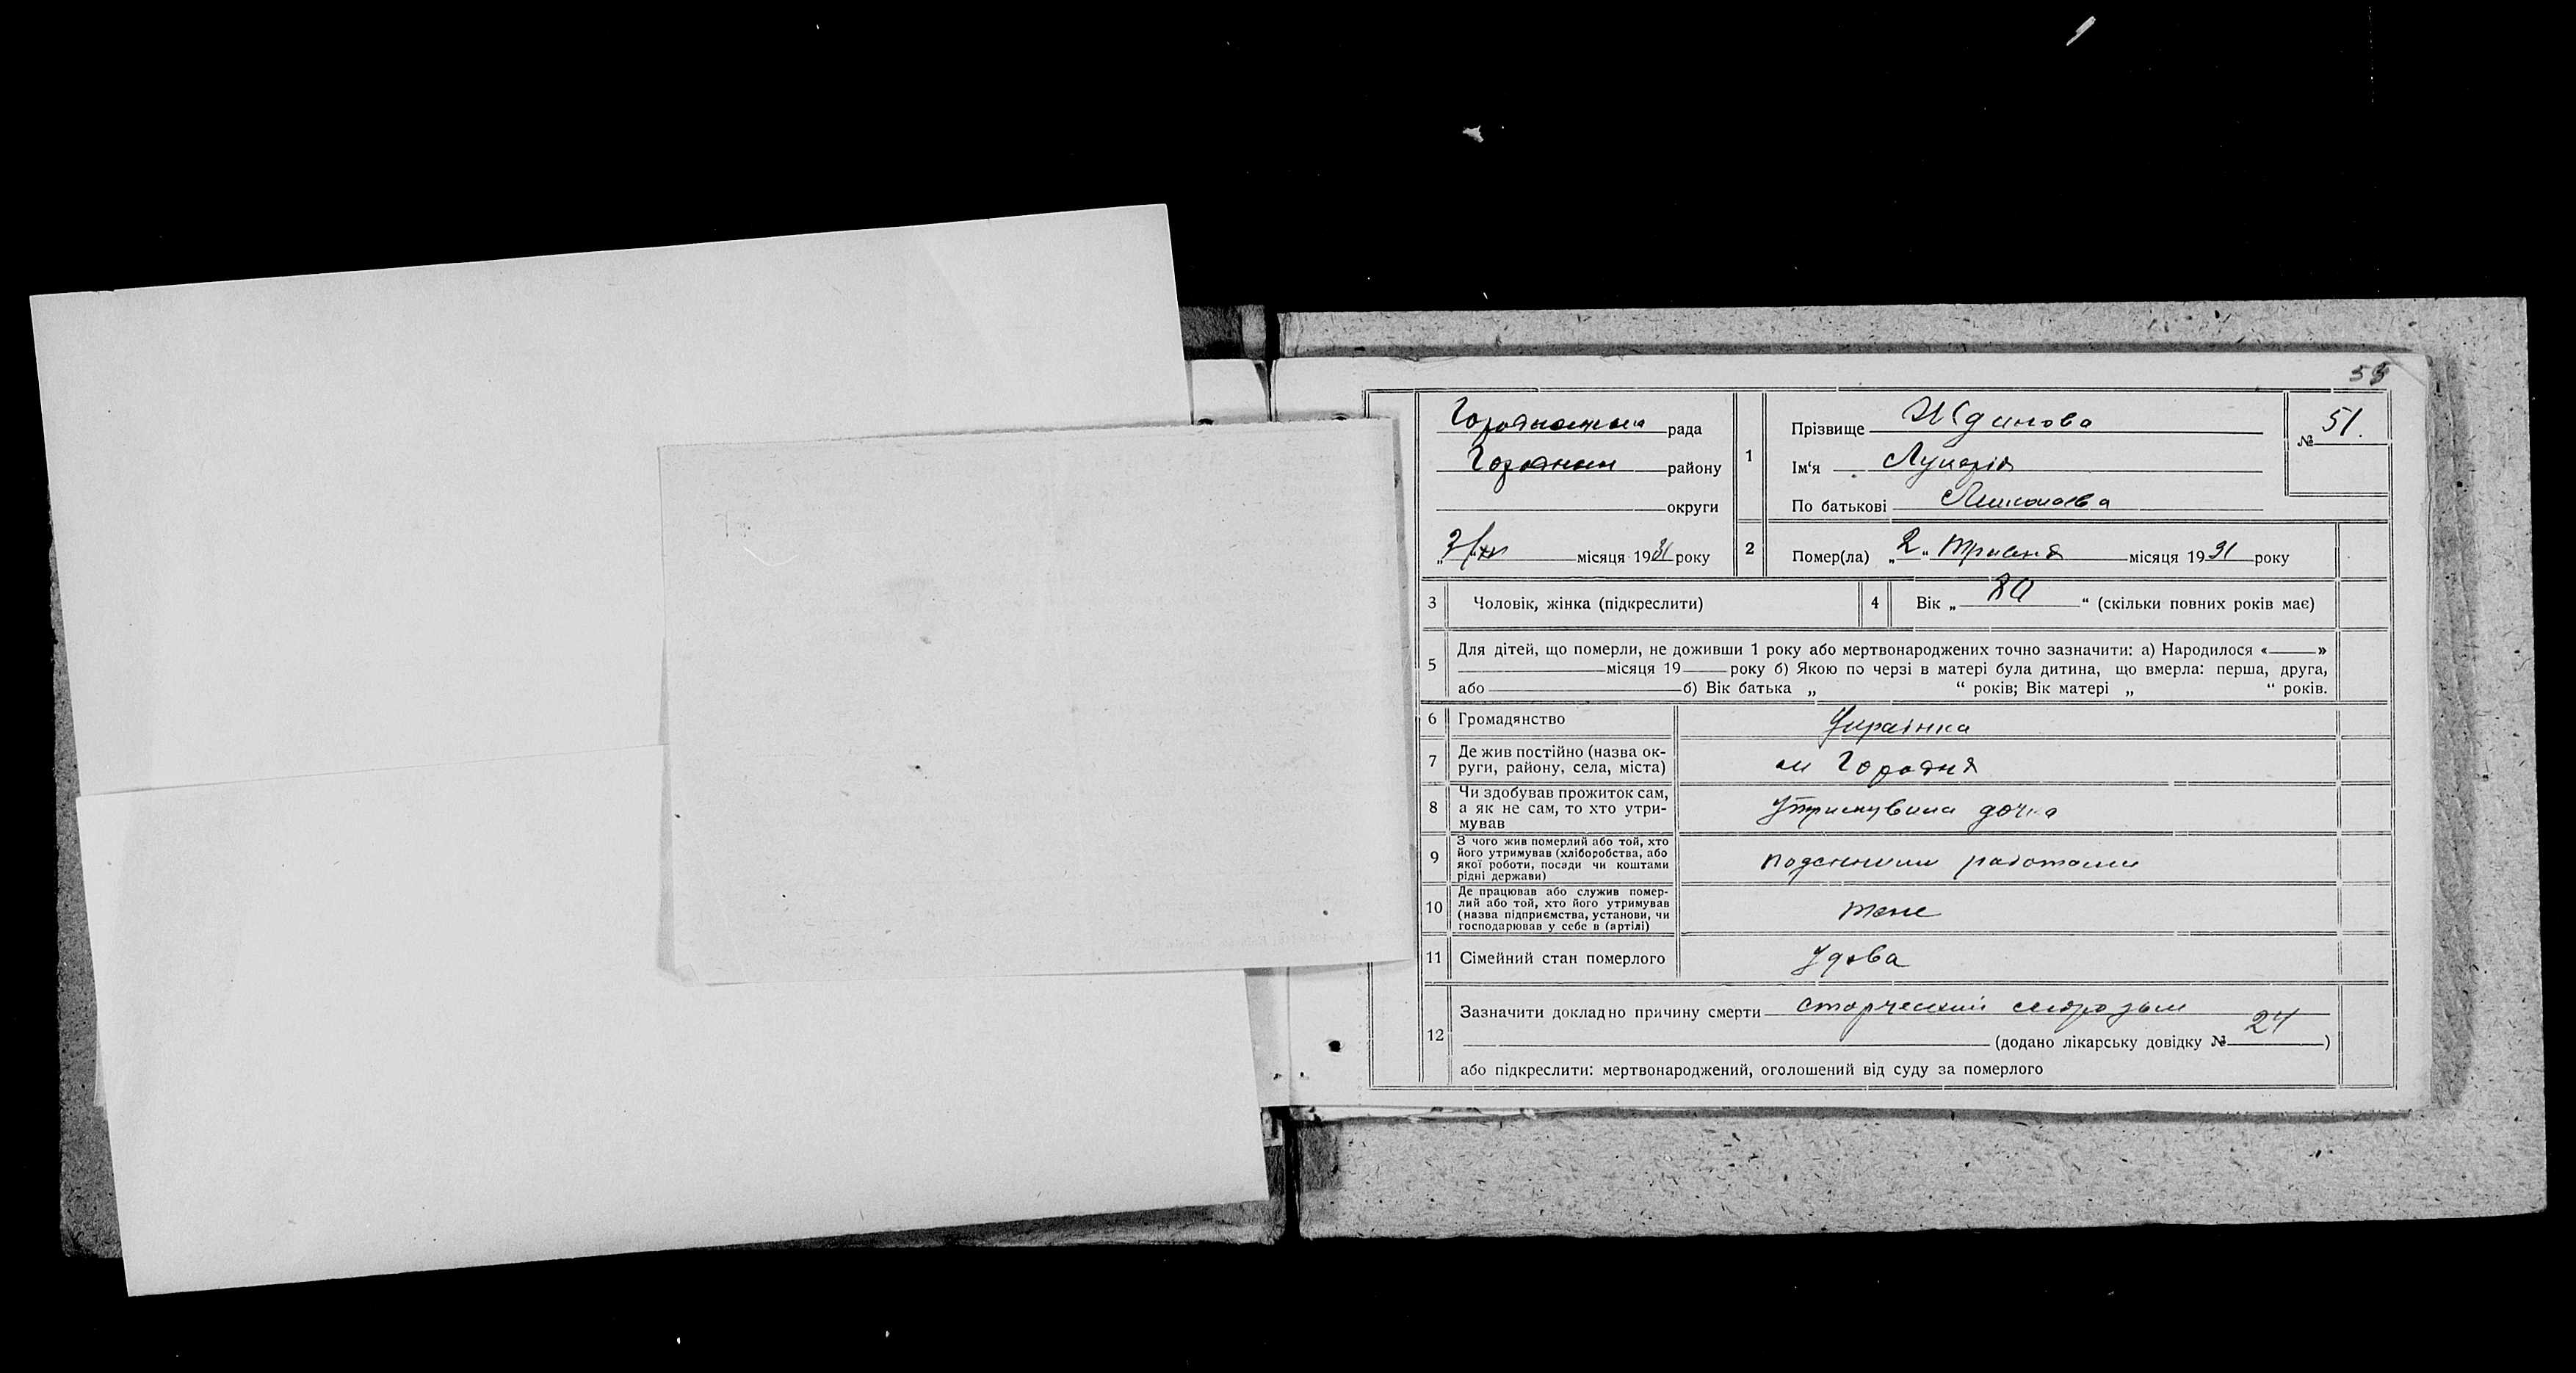 55
Городнянська рада
Городнян району
округи
№ 51.
1 Прізвище Жданова
Ім‘я Лукерія
По батькові Миколаєва
„3/IV місяця 1931 року
2 Помер(ла) „2“ травня місяця 1931 року
3 Чоловік, жінка (підкреслити)
4 Вік „80“ (скільки повних років має)
5 Для дітей, що померли, не доживши 1 року або мертвонароджених точно зазначити: а) Народилося «——»
місяця 19 року б) Якою по черзі в матері була дитина, що вмерла: перша, друга,
або б) Вік батька „ “ років; Вік матері „ “ років.
6 Громадянство Украінка
7 Де жив постійно (назва ок-
руги, району, села, міста) м Городня
8 Чи здобував прожиток сам,
а як не сам, то хто утри-
мував Утримувала дочка
9 З чого жив померлий або той, хто
його утримував (хліборобства, або
якої роботи, посади чи коштами
рідні держави) поденними работами
10 Де працював або служив помер-
лий або той, хто його утримував
(назва підприємства, установи, чи
господарював у себе в (артілі) теж
11 Сімейний стан померлого Удова
12 Зазначити докладно причину смерти старческий
(додано лікарську довідку № 24)
або підкреслити: мертвонароджений, оголошений від суду за померлого